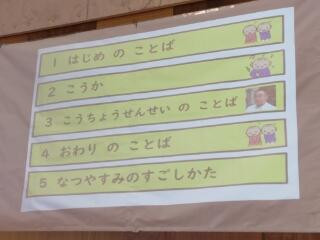 1 はじめ の ことば
2 こうか
3 こうちょうせんせい の ことば
4 おわり の ことば
5 なつやすみのすごしかた